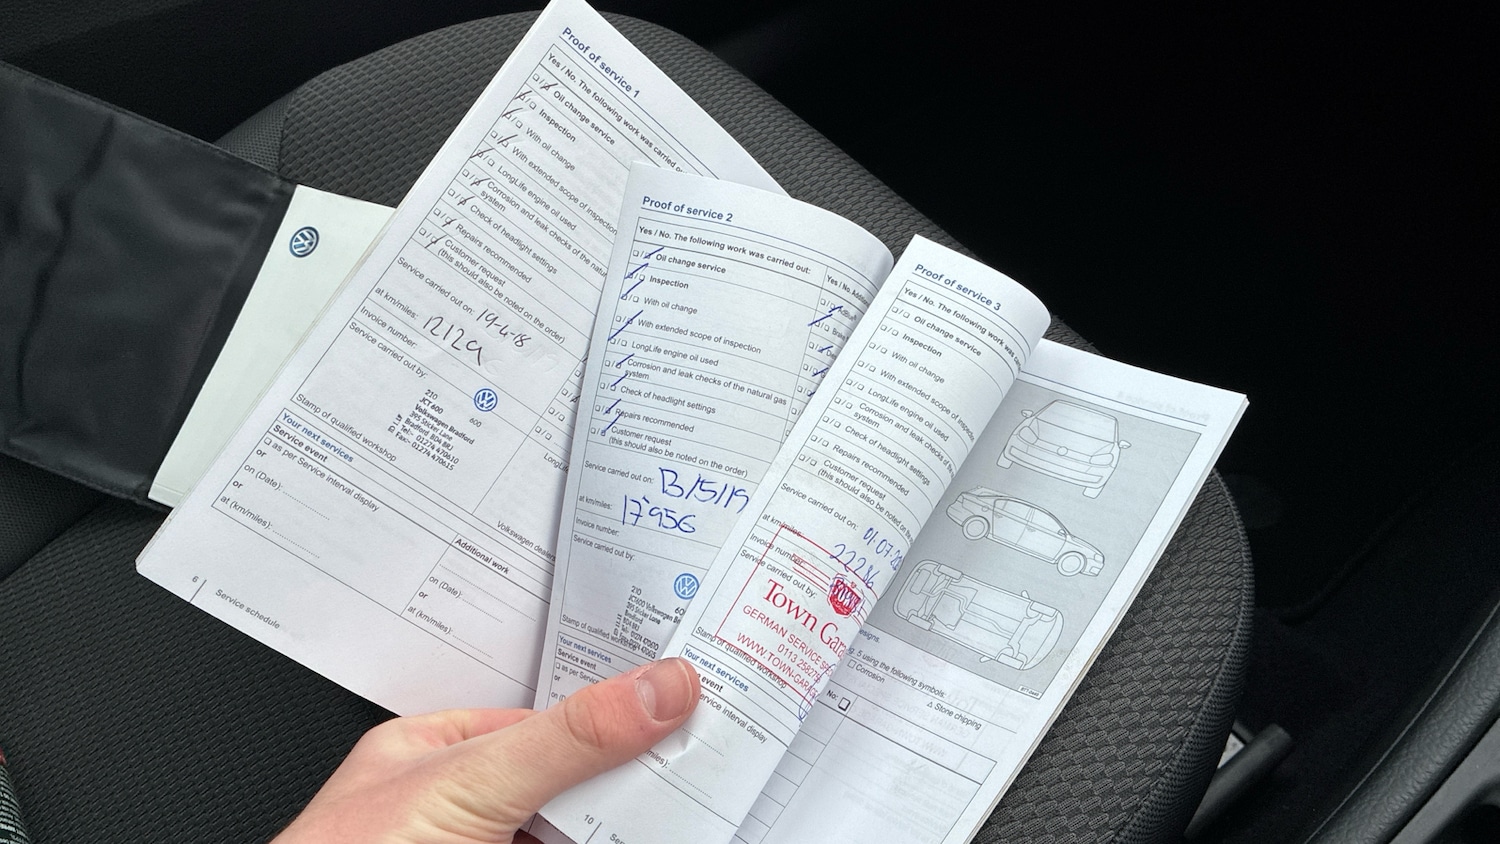 Proof of service 1
Yes / No. The following work was carried
Oil change service
Inspection
With oil change
With extended scope of inspection
LongLife engine oil used
Corrosion and leak checks of the
system
Check of headlight settings
Repairs recommended
Customer request
(this should also be noted on the order)
Service carried out on: 19-4-18
at km/miles:
Invoice number:
Service carried out by:
210
600
JCT 600
Volkswagen Bradford
395 Sticker Lane
Bradford BD4 8RJ
Tel:- 01274 470610
Fax:- 01274 470615
Stamp of qualified workshop
Your next services
Service event
as per Service interval display
or
on (Date):
or
at (km/miles):
Additional work
on (Date):
or
at (km/miles):
Volkswagen
6
Service schedule
Proof of service 2
Yes / No. The following work was carried out:
Oil change service
Inspection
With oil change
With extended scope of inspection
LongLife engine oil used
Corrosion and leak checks of the natural gas
system
Check of headlight settings
Repairs recommended
Customer request
(this should also be noted on the order)
Service carried out on: 13/5/19
at km/miles: 17956
Invoice number:
Service carried out by:
210
JCT600 Volkswagen
395 Sticker Lane
Bradford
BD4 8RJ
Stamp of qualified
Your next services
Service event
as per
or
on
Proof of service 3
Yes / No. The following work was
Oil change service
Inspection
With oil change
With extended scope of
LongLife engine oil used
Corrosion and leak checks
system
Check of headlight settings
Repairs recommended
Customer request
(this should also be noted on
Service carried out on: 01.07.
at km/miles:
Invoice number:
Service carried out by:
Town
GERMAN SERVICE
0113
WWW.TOWN-
Stamp of qualified workshop
Your next services
event
service interval display
10
5 using the following symbols:
Corrosion
Stone chipping
No: